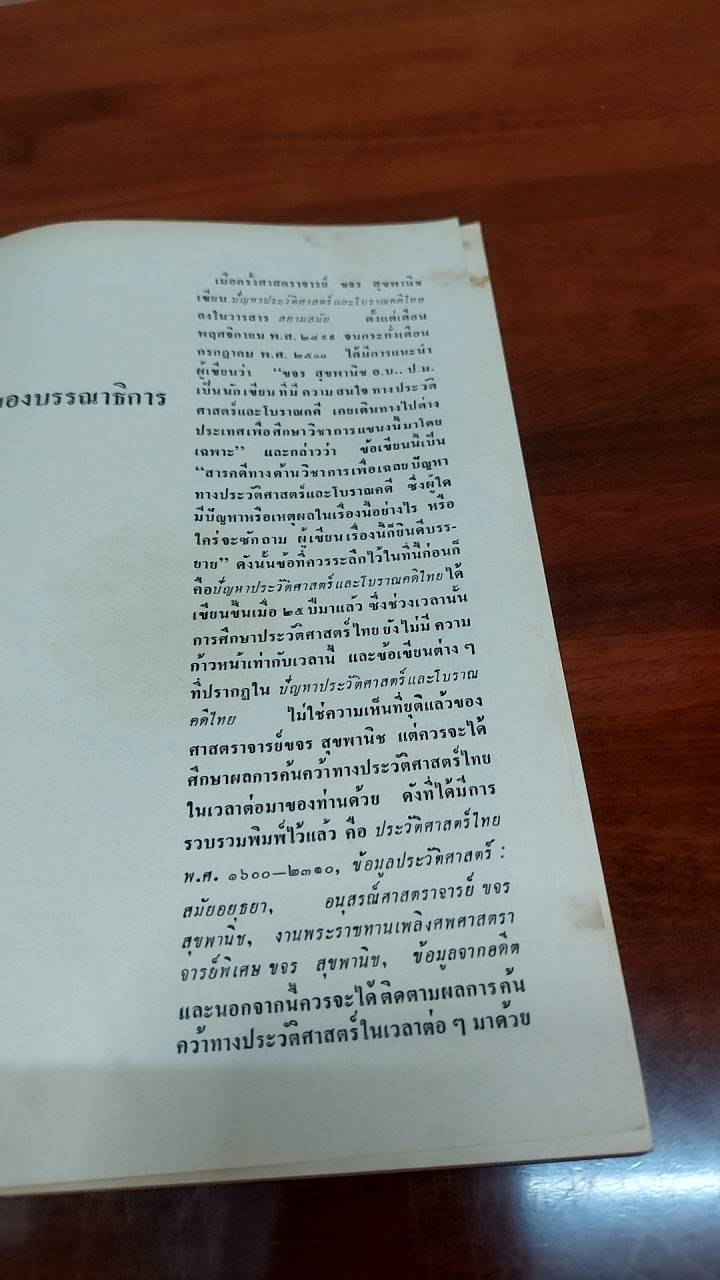 ของบรรณาธิการ
เมื่อครั้งศาสตราจารย์ ขจร สุขพานิช
เขียน ปัญหาประวัติศาสตร์และโบราณคดีไทย
ลงในวารสาร สยามสมัย ตั้งแต่เดือน
พฤศจิกายน พ.ศ. ๒๔๙๙ จนกระทั่งเดือน
กรกฎาคม พ.ศ. ๒๕๐๐ ได้มีการแนะนำ
ผู้เขียนว่า “ขจร สุขพานิช อ.บ.. ป.ม.
เป็นนักเขียนที่มีความสนใจทางประวัติ
ศาสตร์และโบราณคดี เคยเดินทางไปต่าง
ประเทศเพื่อศึกษาวิชาการแขนงนี้มาโดย
เฉพาะ” และกล่าวว่า ข้อเขียนนี้เป็น
“สารคดีทางด้านวิชาการเพื่อเฉลยปัญหา
ทางประวัติศาสตร์และโบราณคดี ซึ่งผู้ใด
มีปัญหาหรือเหตุผลในเรื่องนี้อย่างไร หรือ
ใคร่จะซักถาม ผู้เขียนเรื่องนี้ก็ยินดีบรร-
ยาย” ดังนั้นข้อที่ควรระลึกไว้ในที่นี้ก่อนก็
คือปัญหาประวัติศาสตร์และโบราณคดีไทย ได้
เขียนขึ้นเมื่อ ๒๕ ปีมาแล้ว ซึ่งช่วงเวลานั้น
การศึกษาประวัติศาสตร์ไทยยังไม่มีความ
ก้าวหน้าเท่ากับเวลานี้ และข้อเขียนต่าง ๆ
ที่ปรากฏใน ปัญหาประวัติศาสตร์และโบราณ
คดีไทย ไม่ใช่ความเห็นที่ยุติแล้วของ
ศาสตราจารย์ขจร สุขพานิช แต่ควรจะได้
ศึกษาผลการค้นคว้าทางประวัติศาสตร์ไทย
ในเวลาต่อมาของท่านด้วย ดังที่ได้มีการ
รวบรวมพิมพ์ไว้แล้ว คือ ประวัติศาสตร์ไทย
พ.ศ. ๑๖๐๐—๒๓๑๐, ข้อมูลประวัติศาสตร์ :
สมัยอยุธยา, อนุสรณ์ศาสตราจารย์ ขจร
สุขพานิช, งานพระราชทานเพลิงศพศาสตรา
จารย์พิเศษ ขจร สุขพานิช, ข้อมูลจากอดีต
และนอกจากนี้ควรจะได้ติดตามผลการค้น
คว้าทางประวัติศาสตร์ในเวลาต่อ ๆ มาด้วย